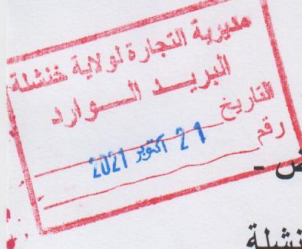 مديرية التجارة لولاية خنشلة
البريد الوارد
التاريخ 21 أكتوبر 2021
رقم
ض -
نشلة